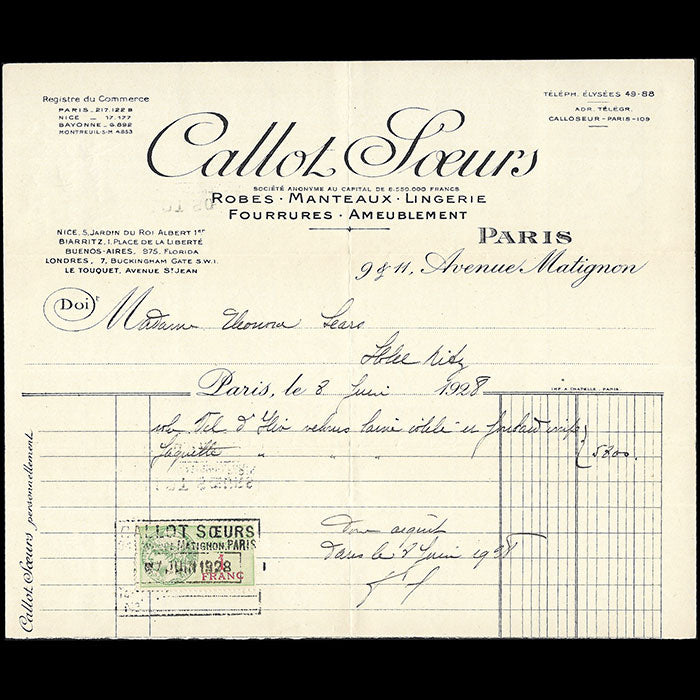 Registre du Commerce
PARIS _ 217.122 B
NICE _ 17.177
BAYONNE _ 6.892
MONTREUIL-S-M 4853
TÉLÉPH. ÉLYSÉES 49-88
ADR. TÉLÉGR.
CALLOSEUR-PARIS-109
Callot Sœurs
SOCIÉTÉ ANONYME AU CAPITAL DE 6.550.000 FRANCS
ROBES · MANTEAUX · LINGERIE
FOURRURES · AMEUBLEMENT
NICE, 5, JARDIN DU ROI ALBERT 1er
BIARRITZ, 1, PLACE DE LA LIBERTÉ
BUENOS-AIRES, 975, FLORIDA
LONDRES, 7, BUCKINGHAM GATE S.W.1.
LE TOUQUET, AVENUE ST JEAN
PARIS
9 & 11, Avenue Matignon
Doit Madame Eleonora Sears
Hotel Ritz
Paris, le 8 Juin 1928
IMP. A. CHATELLE, PARIS
robe Tel d'Hiv velours lainé et
Jaquette " " " 5800.
Callot Sœurs personnellement
CALLOT SŒURS
MATIGNON, PARIS
7 JUIN 1928
1 FRANC
Pour acquit
Paris le 8 Juin 1928